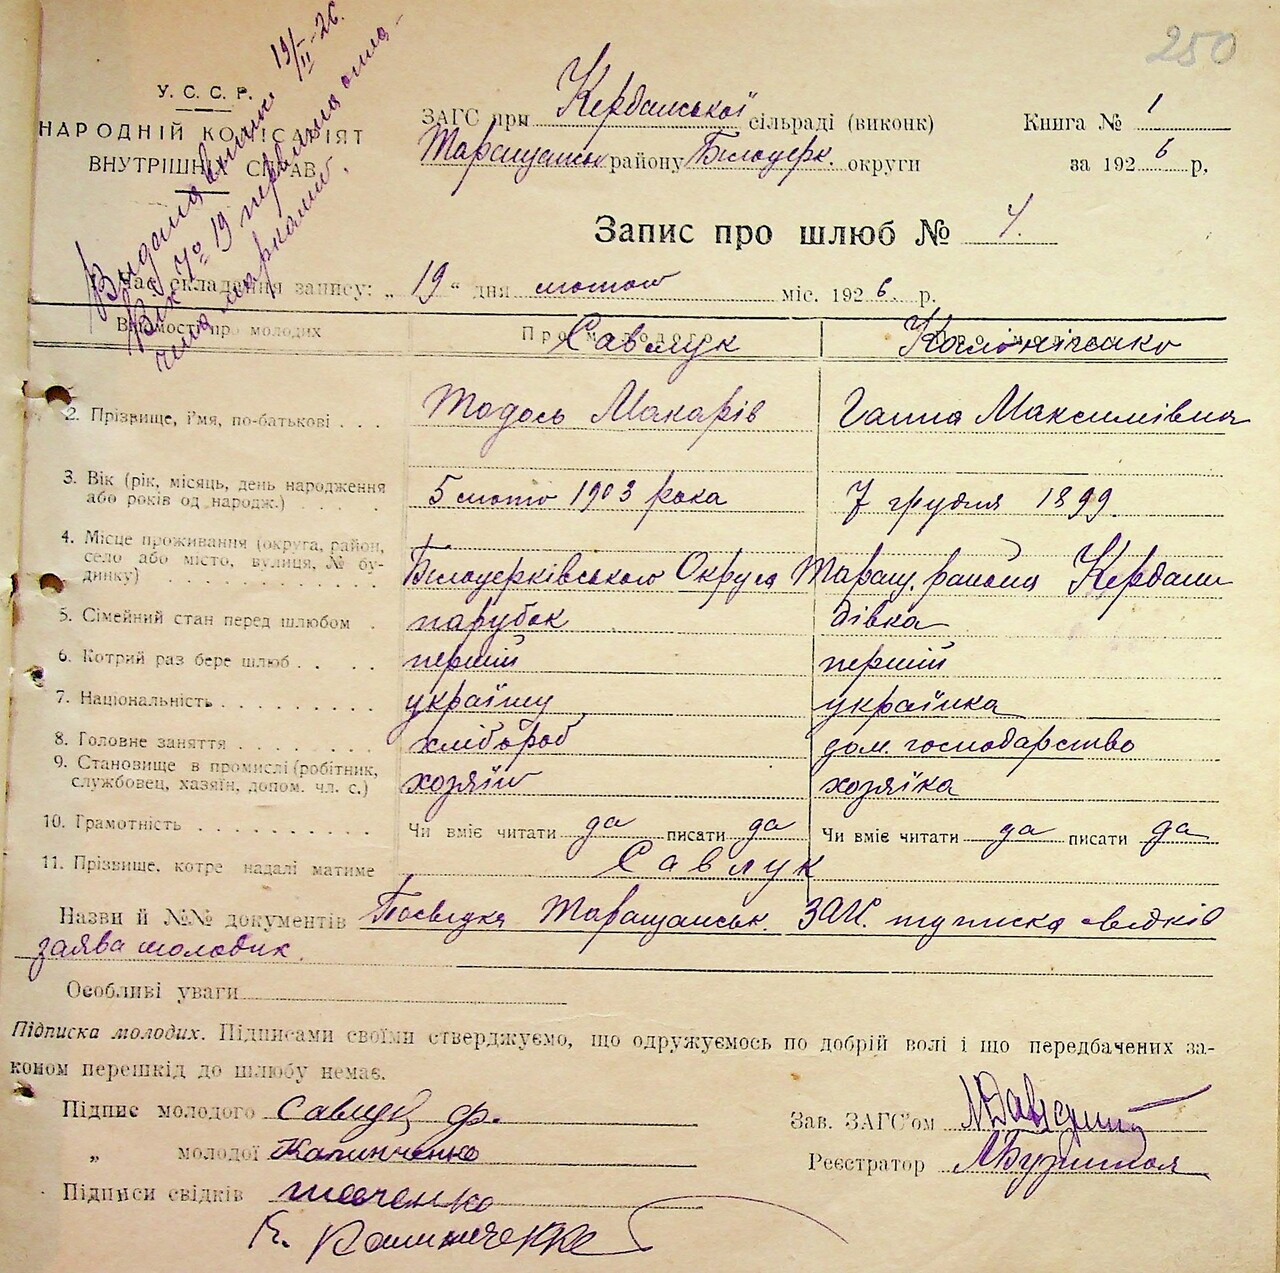 250
У. С. С. Р.
НАРОДНІЙ КОМІСАРІЯТ
ВНУТРІШНІХ СПРАВ
Видана 19/II-26.
ЗАГС при Керданської сільраді (виконк)
Книга № 1
Таращанськ району Білоцерк. округи
за 1926 р.
Запис про шлюб № 7.
1. Час складення запису: „19“ дня лютого міс. 1926. р.
Відомості про молодих
Про молодого Савлук
Калініченко
2. Прізвище, ім'я, по-батькові . . .
Тодось Макарів
Ганна Максимівна
3. Вік (рік, місяць, день народження
або років од народж.) . . . .
5 лютого 1903 рока
7 грудня 1899.
4. Місце проживання (округа, район,
село або місто, вулиця, № бу-
динку) . . . . . . . . . . . .
Білоцерківського Округа Таращ. района Кердани
5. Сімейний стан перед шлюбом .
парубок
дівка
6. Котрий раз бере шлюб . . . .
перший
перший
7. Національність . . . . . . . . .
українец
українка
8. Головне заняття . . . . . . . .
хлібороб
дом. господарство
9. Становище в промислі (робітник,
службовец, хазяїн, допом. чл. с.)
хозяїн
хозяїка
10. Грамотність . . . . . . . . . .
Чи вміє читати да писати да
Чи вміє читати да писати да
11. Прізвище, котре надалі матиме
Савлук
Назви й №№ документів Посвідка Таращанськ. ЗАГС. підписка свідків
заява молодих.
Особливі уваги
Підписка молодих. Підписами своїми стверджуємо, що одружуємось по добрій волі і що передбачених за-
коном перешкід до шлюбу немає.
Підпис молодого Савлук ф.
Зав. ЗАГС'ом
„ молодої Калинченко
Реєстратор
Підписи свідків Шевченко
Калиниченко